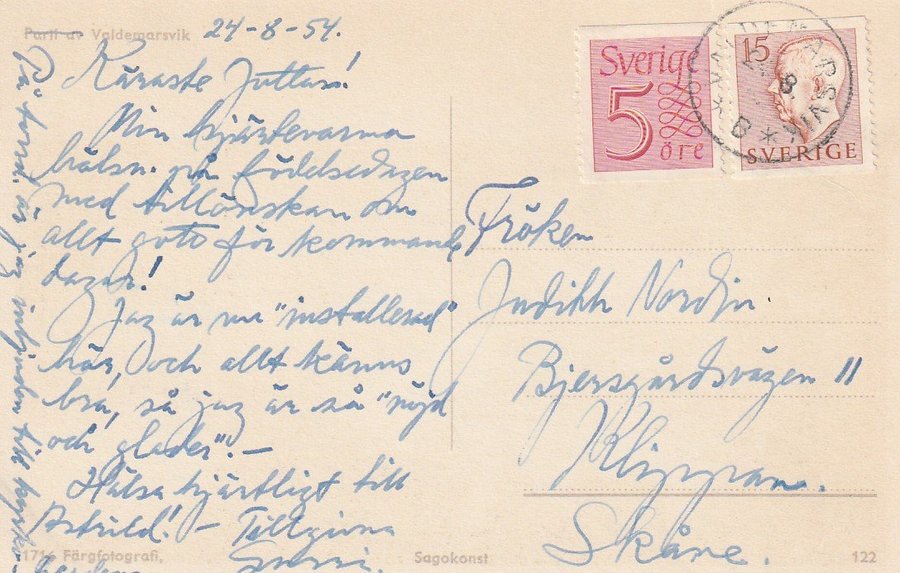 Parti av Valdemarsvik 24-8-54.
Käraste Juttan!
Min hjärtevarma
hälsn. på födelsedagen
med tillönskan om
allt gott för kommande
dagar!
Jag är nu "installerad"
här, och allt känns
bra, så jag är så "nöjd
och glader".-
Hälsa hjärtligt till
Astrid! - Tillgivna
På torsd. är jag inbjuden till kyrko-
Sverige
5
öre
15
SVERIGE
VALDEMARSVIK
8
B
Fröken
Judith Nordin.
Bjersgårdsvägen 11
Klippan.
Skåne.
1716 Färgfotografi,
Sagokonst
122